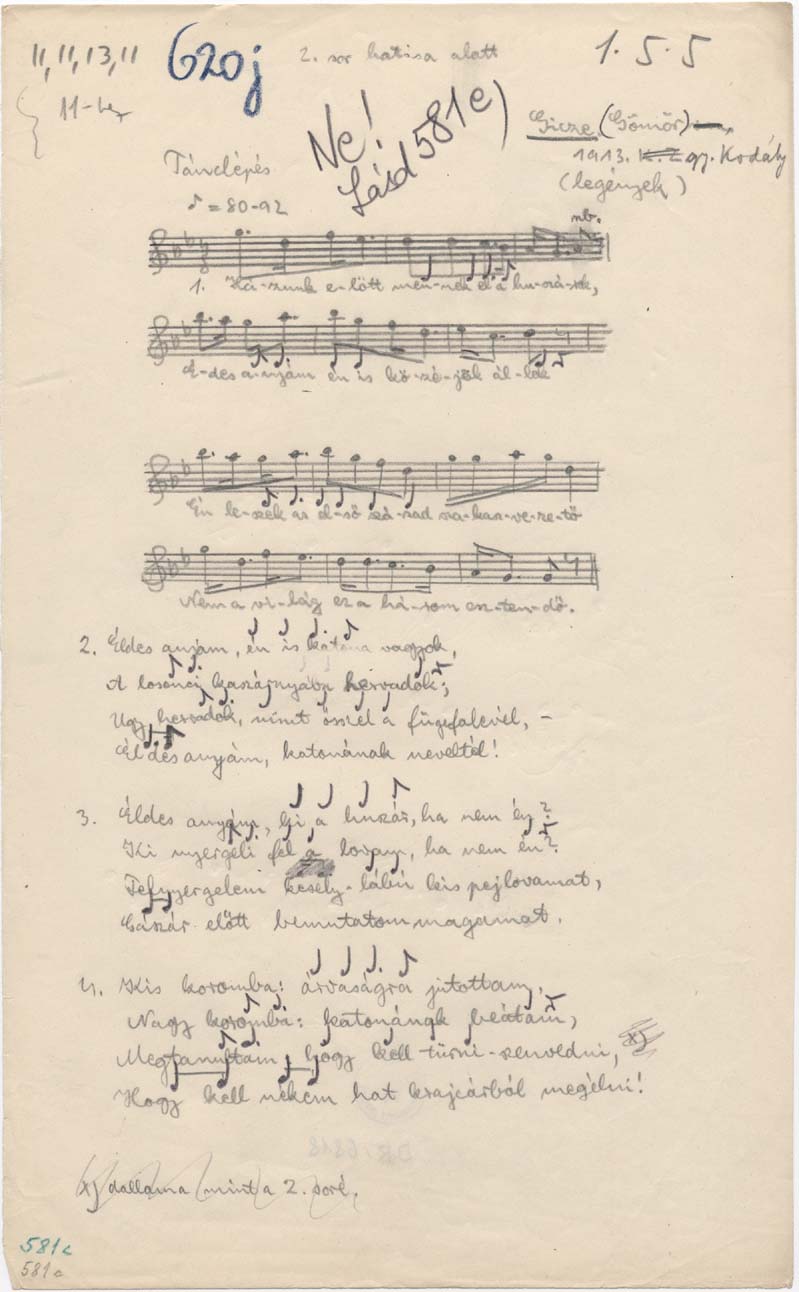 11, 11, 13, 11
620j
2. sor hatása alatt
1. 5. 5
11-hez
Ne!
Lásd 581e)
Gicze (Gömör)
1913. gy. Kodály
(legények)
Tánclépés
♪ = 80-92
nb.
1. Há-zunk e-lőtt men-nek el a hu-szá-rok,
É-des a-nyám én is kö-zé-jök ál-lok
Én le-szek az el-ső szá-zad sza-kasz-ve-ze-tő
Nem a vi-lág ez a há-rom esz-ten-dő.
2. Éldes anyám, én is katona vagyok,
A losonci kaszárnyába hervadok;
Ugy hervadok, mint ősszel a fügefalevél, –
Éldes anyám, katonának neveltél!
3. Éldes anyám, ki a huszár, ha nem én?
Ki nyergeli fel a lovam, ha nem én?
Felnyergelem kesely-lábú kis pejlovamat,
Császár előtt bemutatom magamat.
4. Kis koromba: árvaságra jutottam,
Nagy koromba: katonának beátam,
Megtanultam, hogy kell türni-szenvedni, x)
Hogy kell nékem hat krajcárból megélni!
x) dallama mint a 2. soré.
581c
581c